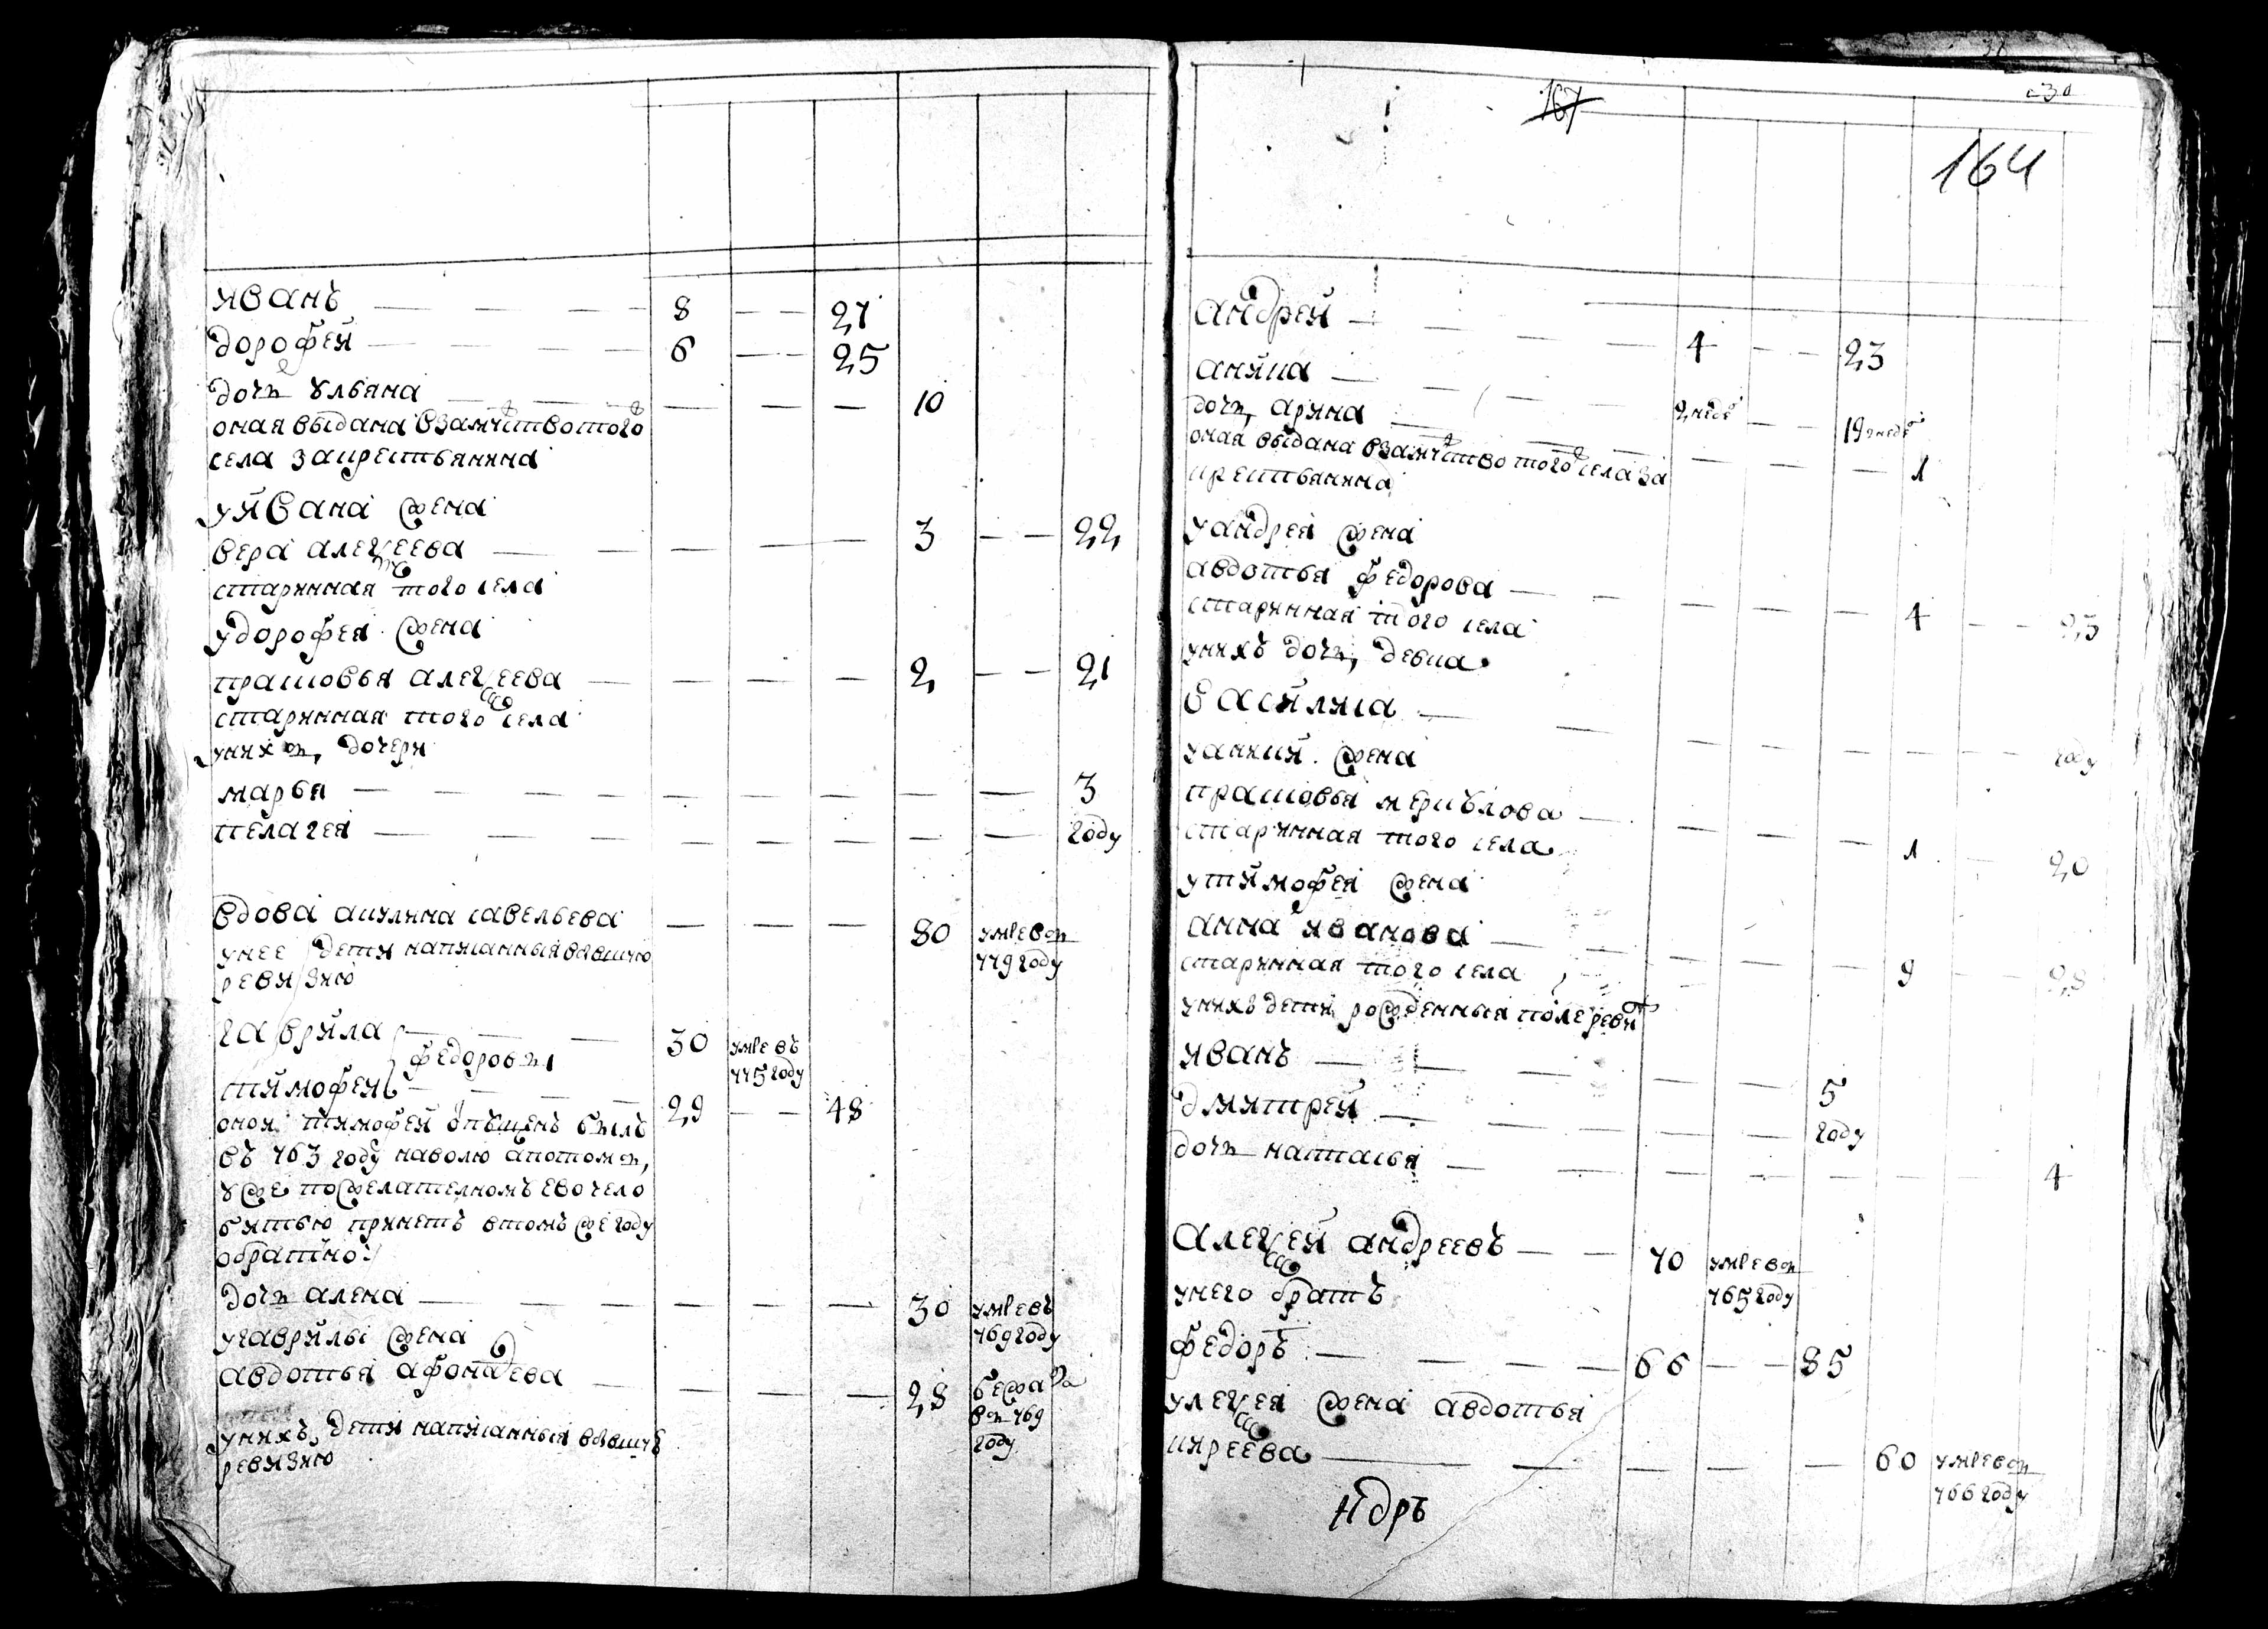 иванъ — — — — 8 — — 27
дорофей — — — — 6 — — 25
дочь ульяна — — — — — — 10
оная выдана взамуство того
села за крестьянина
у ивана жена
вера алексеева — — — — — 3 — — 22
старинная того села
у дорофея жена
прасковья алексеева — — — — 2 — — 21
старинная того села
у них дочери
марья — — — — — — — — — — 3
пелагея — — — — — — — — — году
вдова акулина савельева — — — 80 умре в
779 году
у нее дети написанныя в бывшую
ревизию
гаврила — — — 50 умре въ
775 году
федоровы
тимофей — — — 29 — — 48
оной тимофей опущенъ былъ
въ 763 году на волю а потомъ
уже по желателномъ ево чело
битью принетъ в томъ же году
обратно
дочь алена — — — — — — 30 умре въ
769 году
у гаврилы жена
авдотья афонасева — — — — 28 бежала
в 769
году
у нихъ дети написанныя в бывшую
ревизию
167
30
164
андрей — — — — 4 — — 23
аника — — — — 2 неде — — 19 2 неде
дочь арина — — — — — — 1
оная выдана взамуство того села за
крестьянина
у андрея жена
авдотья федорова — — — — — 4 — — 23
старинная того села
у нихъ дочь девка
василиса — — — — — — — — году
у аники жена
прасковья меркулова — — — — 1 — — 20
старинная того села
у тимофея жена
анна иванова — — — — — 9 — — 28
старинная того села
у нихъ дети рожденныя после реви
иванъ — — — — — — 5
дмитрей — — — — — — году
дочь наталья — — — — — — — — 4
алексей андреевъ — — 70 умре в
765 году
у него братъ
федоръ — — — — 66 — — 85
у лексея жена авдотья
киреева — — — — — 60 умре в
766 году
ндръ